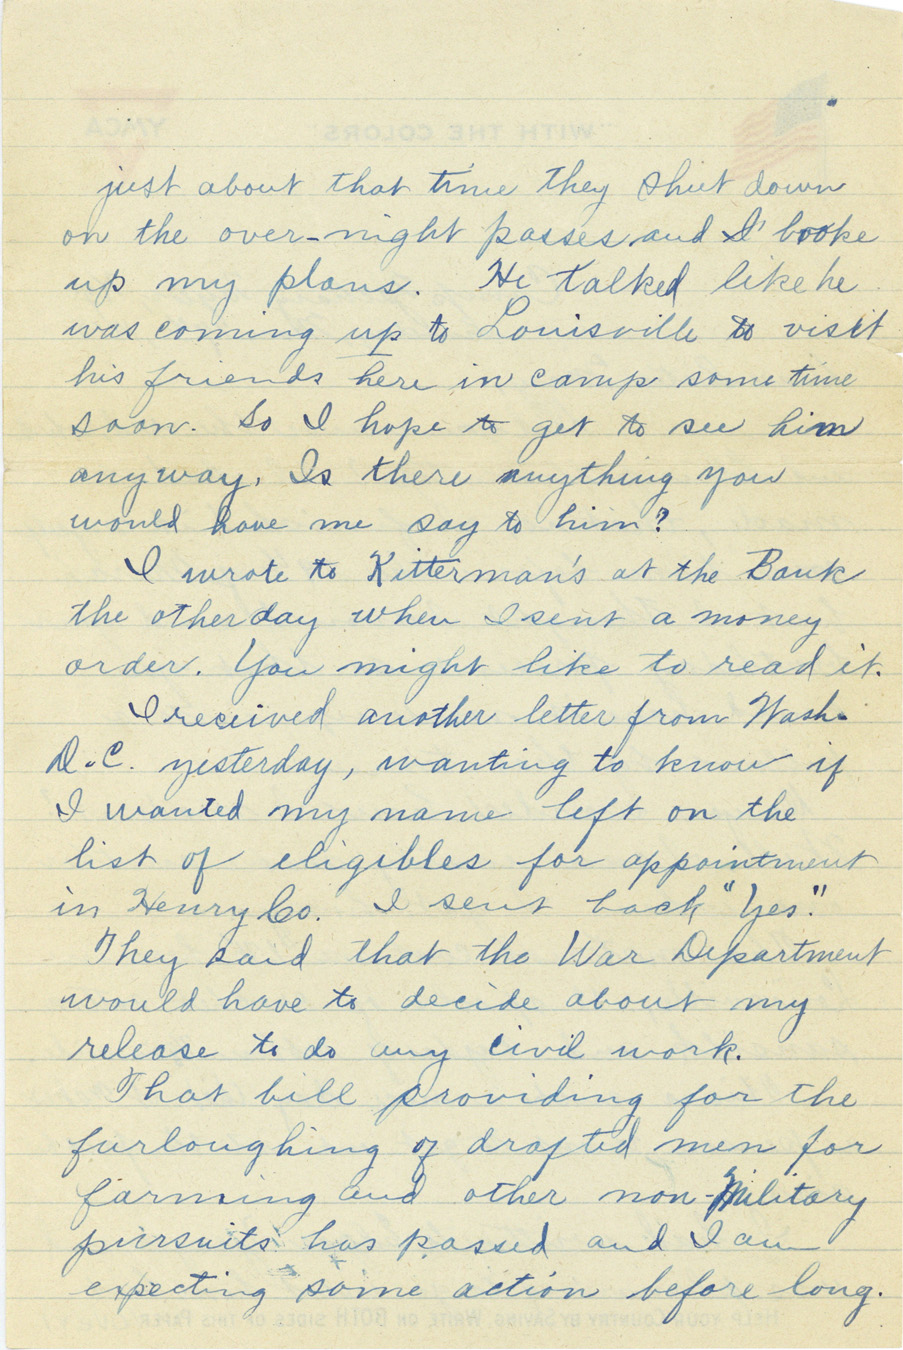 just about that time they shut down
on the over-night passes and I booke
up my plans. He talked like he
was coming up to Louisville to visit
his friends here in camp some time
soon. So I hope to get to see him
anyway. Is there anything you
would have me say to him?
I wrote to Kitterman's at the Bank
the other day when I sent a money
order. You might like to read it.
I received another letter from Wash.
D.C. yesterday, wanting to know if
I wanted my name left on the
list of eligibles for appointment
in Henry Co. I sent back "Yes."
They said that the War Department
would have to decide about my
release to do any civil work.
That bill providing for the
furloughing of drafted men for
farming and other non-Military
pursuits has passed and I am
expecting some action before long.
"WITH THE COLORS"
YMCA
HELP YOUR COUNTRY BY SAVING. WRITE ON BOTH SIDES OF THIS PAPER